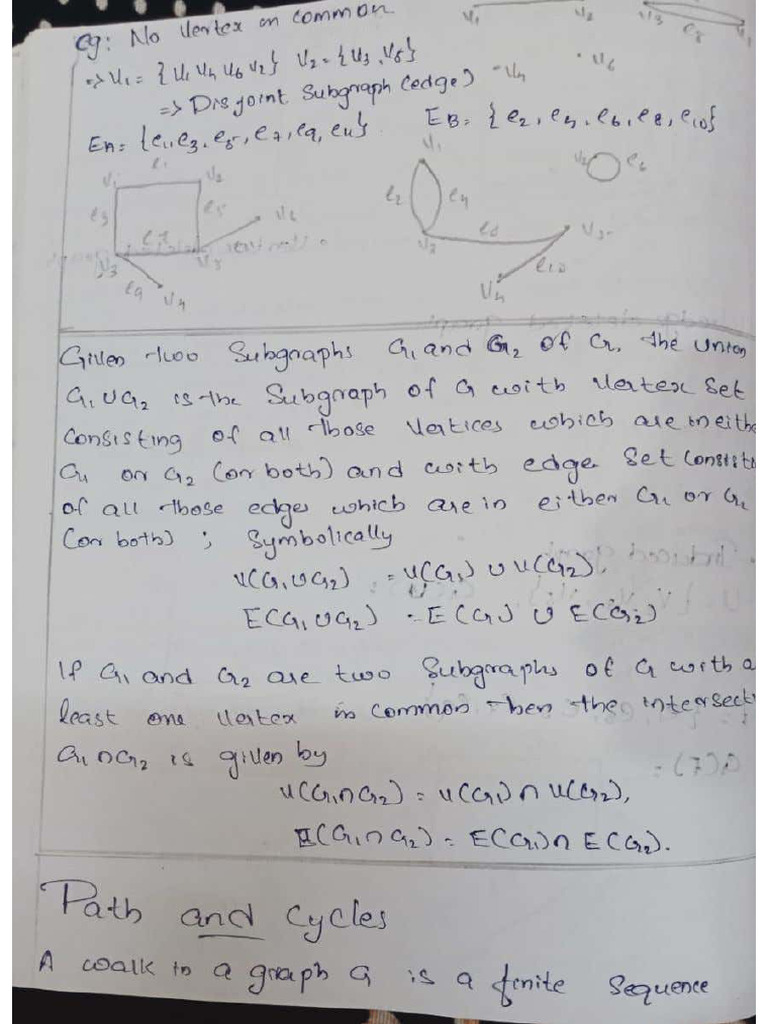 eg: No vertex in common
=> V1 = {V1 V4 V6 V2} V2 = {V3, V5}
=> Disjoint Subgraph (edge)
V1 V2 V3 e8 V1
V4 V6
EA = {e1, e3, e5, e7, e9, e11} EB = {e2, e4, e6, e8, e10}
e1 V1
V1 V2 V6 e6
e3 e5 V6 e2 e4
e7 e8 V5
V3 V5 V3 e10
e9 V4 V4
Given two Subgraphs G1 and G2 of G, the union
G1 ∪ G2 is the Subgraph of G with vertex set
consisting of all those vertices which are in eithe
G1 or G2 (or both) and with edge set consisti
of all those edges which are in either G1 or G2
(or both) ; Symbolically
V(G1 ∪ G2) = V(G1) ∪ V(G2),
E(G1 ∪ G2) = E(G1) ∪ E(G2)
If G1 and G2 are two Subgraphs of G with a
least one vertex in common then the intersect
G1 ∩ G2 is given by
V(G1 ∩ G2) = V(G1) ∩ V(G2),
E(G1 ∩ G2) = E(G1) ∩ E(G2).
Path and Cycles
A walk in a graph G is a finite sequence